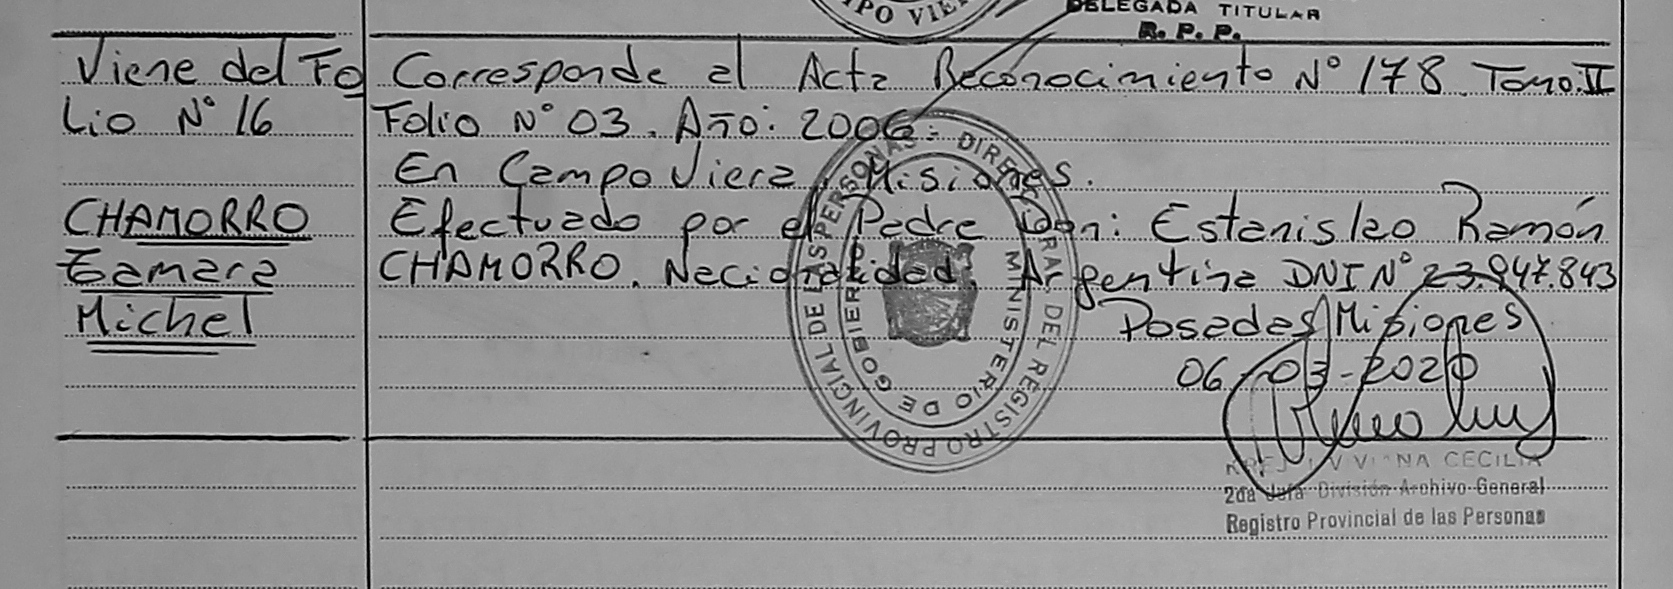 DELEGADA TITULAR
R. P. P.
Viene del Fo
Lio N° 16
CHAMORRO
Tamara
Michel
Corresponde al Acta Reconocimiento N° 178. Tomo. II
Folio N° 03. Año: 2006.
En Campo Viera, Misiones.
Efectuado por el Padre Don: Estanislao Ramón
CHAMORRO. Nacionalidad: Argentina DNI N° 23.947.843
Posadas Misiones
06-03-2020
DIRECCIÓN GENERAL DEL REGISTRO PROVINCIAL DE LAS PERSONAS
MINISTERIO DE GOBIERNO
CECILIA
2da Jefa División Archivo General
Registro Provincial de las Personas